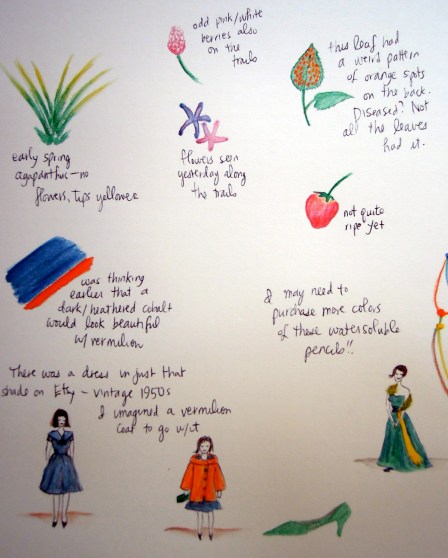 odd pink/white
berries also
on the
trails
this leaf had
a weird pattern
of orange spots
on the back.
Diseased? Not
all the leaves
had it.
early spring
agapanthus — no
flowers, tips yellowed
flowers seen
yesterday along
the trails
not quite
ripe yet
was thinking
earlier that a
dark/heathered cobalt
would look beautiful
w/ vermilion
I may need to
purchase more colors
of these watersoluble
pencils!!
There was a dress in just that
shade on Etsy – vintage 1950s
I imagined a vermilion
coat to go w/it